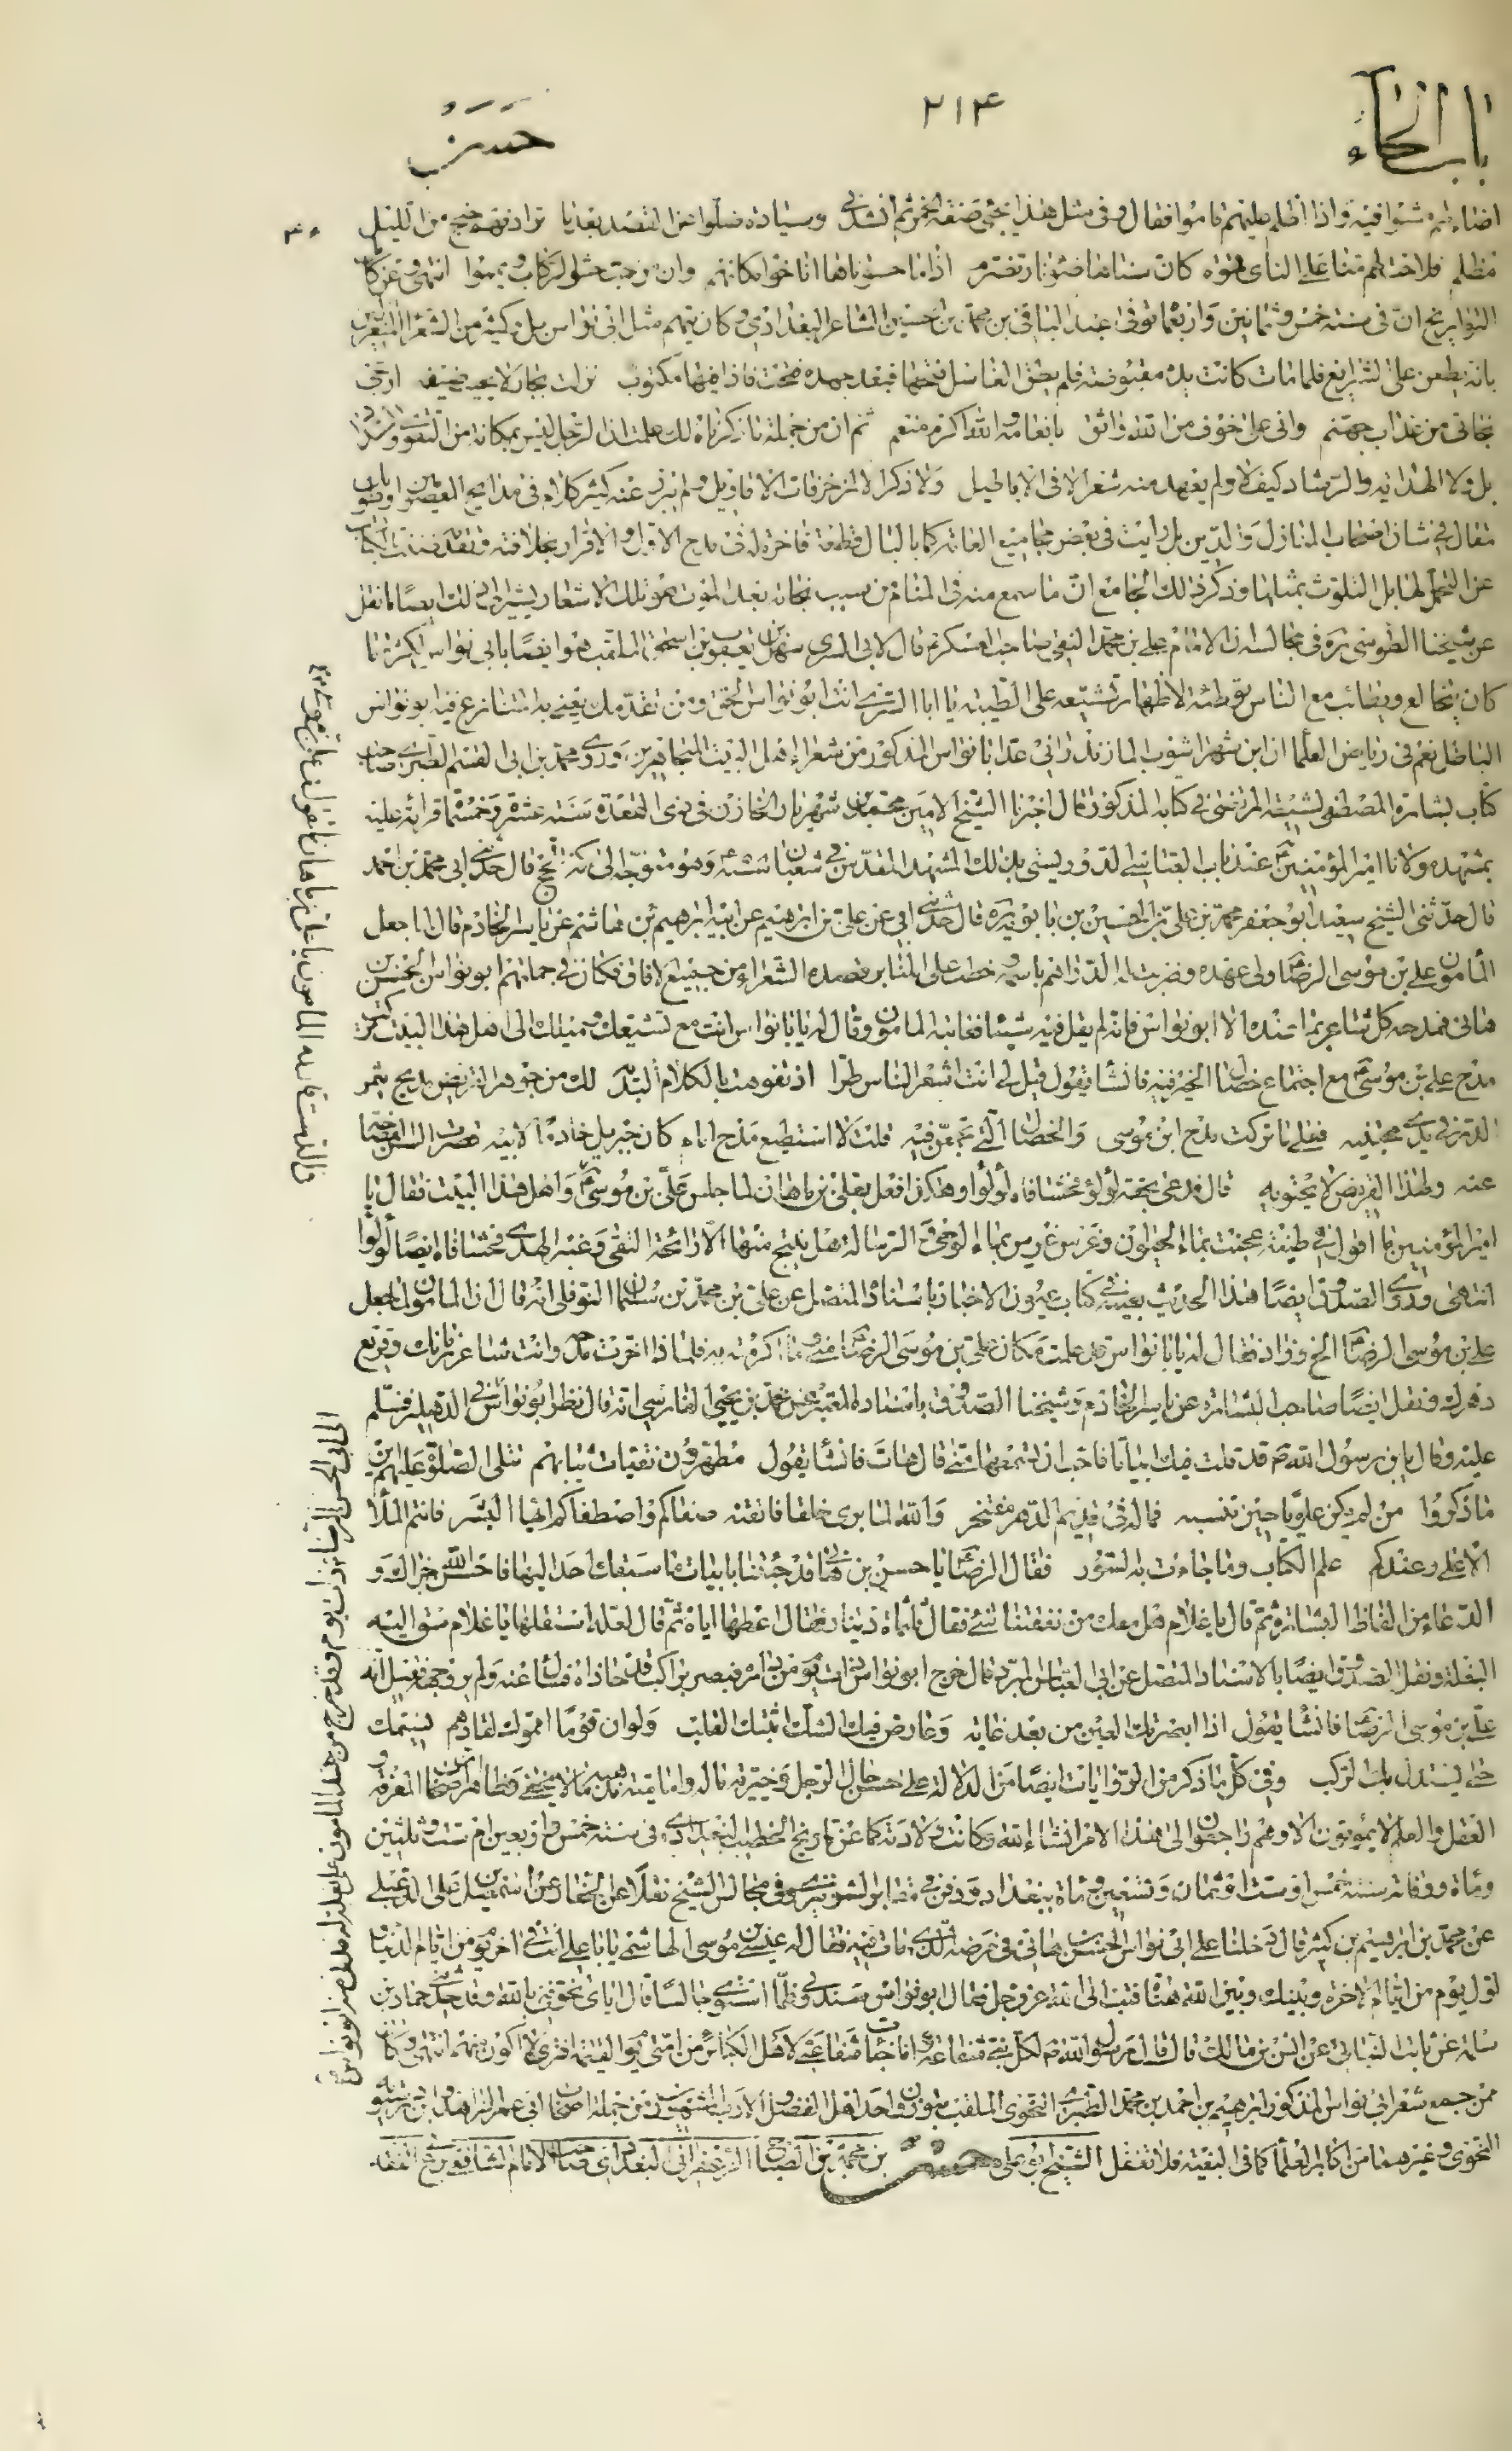 باب الحاء
٢١٤
حسن
اضاء لهم مشوا فيه واذا اظلم عليهم قاموا فقال وفى مثل هذا يجئ صفة الخمر ثم انشدنى وسيارة ضلوا عن القصد بعد ما ترادفهم جنح من الليل
مظلم فلاحت لهم منا على النأى قهوة كان سناها ضوء نار تضرم اذا ما حسوناها اناخوا مكانهم وان مزجت حثوا الركاب ويمموا انتهى وعن كتاب
التواريخ ان فى سنة خمس وثمانين واربعمائة توفى عبد الباقى بن محمد بن الحسين الشاعر البغدادى وكان يتهم مثل ابى نواس بل وكثير من الشعراء
بانه يطعن على الشرايع فلما مات كانت يده مقبوضة فلم يطق الغاسل فتحها فبعد جهده فتحت فاذا فيها مكتوب نزلت بجار لا يخيب ضيفه ارجى
نجاتى من عذاب جهنم وانى على خوف من الله واثق بانعامه والله اكرم منعم ثم ان من جملة ما ذكرناه لك علمت ان الرجل ليس بمكانة من التقوى
بل ولا الهداية والرشاد كيف لا ولم يعهد منه شعر الا فى الاباطيل ولا ذكر الا لزخرفات الاقاويل ولم يبرز عنه كثير كلام فى مدايح المعصومين او
مقال فى شان اصحاب المنازل والدين بل رايت فى بعض مجاميع العامة قطعة فاخرة له فى مدح الاول والاقرار بخلافته
عن التحمل لها بل التلوث بمثلها وذكر ذلك الجامع ان ما سمع منه فى المنام من سبب نجاته بعد الموت هو تلك الاشعار يشير الى ذلك ايضا ما نقل
عن شيخنا الطوسى ره فى مجالسه ان الامام على بن محمد النقى صاحب العسكر قال لابى السرى سهل بن يعقوب بن اسحق الملقب هو ايضا بابى نواس لكثرة ما
كان يتخالع ويطائب مع الناس توطئة لاظهار تشيعه على الطيبة يا ابا السرى انت ابو نواس الحق ومن تقدمك يعنى به المتنازع فيه ابو نواس
الباطل نعم فى رياض العلماء ان ابن شهراشوب المازندرانى عد ابا نواس المذكور من شعراء اهل البيت المجاهرين وروى محمد بن ابى القسم الطبرى صاحب
كتاب بشارة المصطفى لشيعة المرتضى فى كتابه المذكور قال اخبرنا الشيخ الامين محمد بن شهريار الخازن فى ذى القعدة سنة عشرة وخمسمائة قرائة عليه
بمشهد مولانا امير المؤمنين قال
قال حدثنى الشيخ السعيد ابو جعفر محمد بن على بن الحسين بن بابويه ره قال حدثنى ابى عن على بن ابرهيم عن ابيه ابرهيم بن هاشم عن ياسر الخادم قال لما جعل
المامون على بن موسى الرضا ولى عهده وضربت له الدراهم باسمه وخطب له على المنابر قصده الشعراء من جميع الافاق فكان فى جملتهم ابو نواس الحسن بن
هانى فمدحه كل شاعر بما عنده الا ابو نواس فانه لم يقل فيه شيئا فعاتبه المامون وقال له يا ابا نواس انت مع تشيعك وميلك الى اهل هذا البيت تركت
مدح على بن موسى مع اجتماع خصال الخير فيه فانشأ يقول قيل لى انت اشعر الناس طرا اذ تفوهت بالكلام البديه لك من جوهر القريض مديح يثمر
الدر فى يدى مجتنيه فعلى ما تركت مدح ابن موسى والخصال التى تجمعن فيه قلت لا استطيع مدح امام كان جبريل خادما لابيه قصرت السن الفصاحة
عنه ولهذا القريض لا يحتويه قال فدعى بحقة لؤلؤ فحشا فاه لؤلؤا وهكذا فعل بعلى بن ماهان لما جلس على بن موسى واهل هذا البيت فقال يا
امير المؤمنين ما اقول فى طينة عجنت بماء الحيوان وغرس غرس بماء الوحى والرسالة هل ينتج منها الا رائحة التقى وعنبر الهدى فحشا فاه ايضا لؤلؤا
انتهى وروى الصدوق ايضا هذا الحديث بعينه فى كتاب عيون الاخبار باسناده المتصل عن على بن محمد بن سليمان النوفلى انه قال ان المامون لما جعل
على بن موسى الرضا الخ وزاد فقال له يا ابا نواس قد علمت مكان على بن موسى الرضا منى وما اكرمته به فلماذا اخرت مدحه وانت شاعر زمانك وقريع
دهرك ونقل ايضا صاحب البشارة عن ياسر الخادم وشيخنا الصدوق باسناده المعتبر عن محمد بن يحيى الفارسى انه قال نظر ابو نواس الى الدهليز فسلم
عليه وقال يابن رسول الله ص قد قلت فيك ابياتا فاحب ان تسمعها منى قال هات فانشأ يقول مطهرون نقيات ثيابهم تتلى الصلوة عليهم اين
ما ذكروا من لم يكن علويا حين تنسبه فما له فى قديم الدهر مفتخر والله لما برى خلقا فاتقنه صفاكم واصطفاكم ايها البشر فانتم الملأ
الاعلى وعندكم علم الكتاب وما جاءت به السور فقال الرضا يا حسن بن هانى قد جئتنا بابيات ما سبقك احد اليها فاحسن الله جزاك و
الدعاء من الفاظ البشارة ثم قال يا غلام هل معك من نفقتنا شئ فقال ثلثمائة دينار فقال اعطها اياه ثم قال لعله استقلها يا غلام سق اليه
البغلة ونقل الصدوق ايضا بالاسناد المتصل عن ابى العباس المبرد قال خرج ابو نواس ذات يوم من داره فبصر براكب قد حاذاه فسال عنه ولم ير وجهه فقيل انه
على بن موسى الرضا فانشأ يقول اذا ابصرتك العين من بعد غاية وعارض فيك الشك اثبتك القلب ولو ان قوما امموك لقادهم نسيمك
حتى يستدل بك الركب وفى كل ما ذكر من الروايات ايضا من الدلالة على حسن حال الرجل وخيرية ماله وامامية مذهبه ما لا يخفى
العقل والعلم لا يموتون الا وهم راجعون الى هذا الامر انشاء الله وكانت ولادته كما عن تاريخ الخطيب البغدادى فى سنة خمس واربعين ام ست وثلثين
ومائة ووفاته سنة خمس او ست او ثمان وتسعين ومائة ببغداد ودفن فى مقابر الشونيزى وفى مجالس الشيخ نقلا عن الحفار عن اسمعيل بن على الدعبلى
عن محمد بن ابرهيم بن كثير قال دخلنا على ابى نواس الحسن بن هانى فى مرضه الذى مات فيه فقال له عيسى بن موسى الهاشمى يا ابا على انت فى اخر يوم من ايام الدنيا و
اول يوم من ايام الاخرة وبينك وبين الله هنات فتب الى الله عز وجل فقال ابو نواس سندونى فلما استوى جالسا قال اياى تخوفنى بالله وقد حدثنى حماد بن
سلمة عن ثابت البنانى عن انس بن مالك قال قال رسول الله ص لكل نبى شفاعة وانا خبات شفاعتى لاهل الكبائر من امتى يوم القيمة افترى لا اكون منهم انتهى وكان
ممن جمع شعر ابى نواس المذكور ابرهيم بن احمد بن محمد الطبرى النحوى الملقب بتوزون واحد اهل الفضل والادب المشهورين من جملة اصحاب ابى عمر الزاهد وابن درستويه
النحوى وغيرهما من اكابر العلماء كما فى البغية فلا تغفل الشيخ ابو على حسن بن محمد بن الصباح الزعفرانى البغدادى صاحب الامام الشافعى فى الفقه